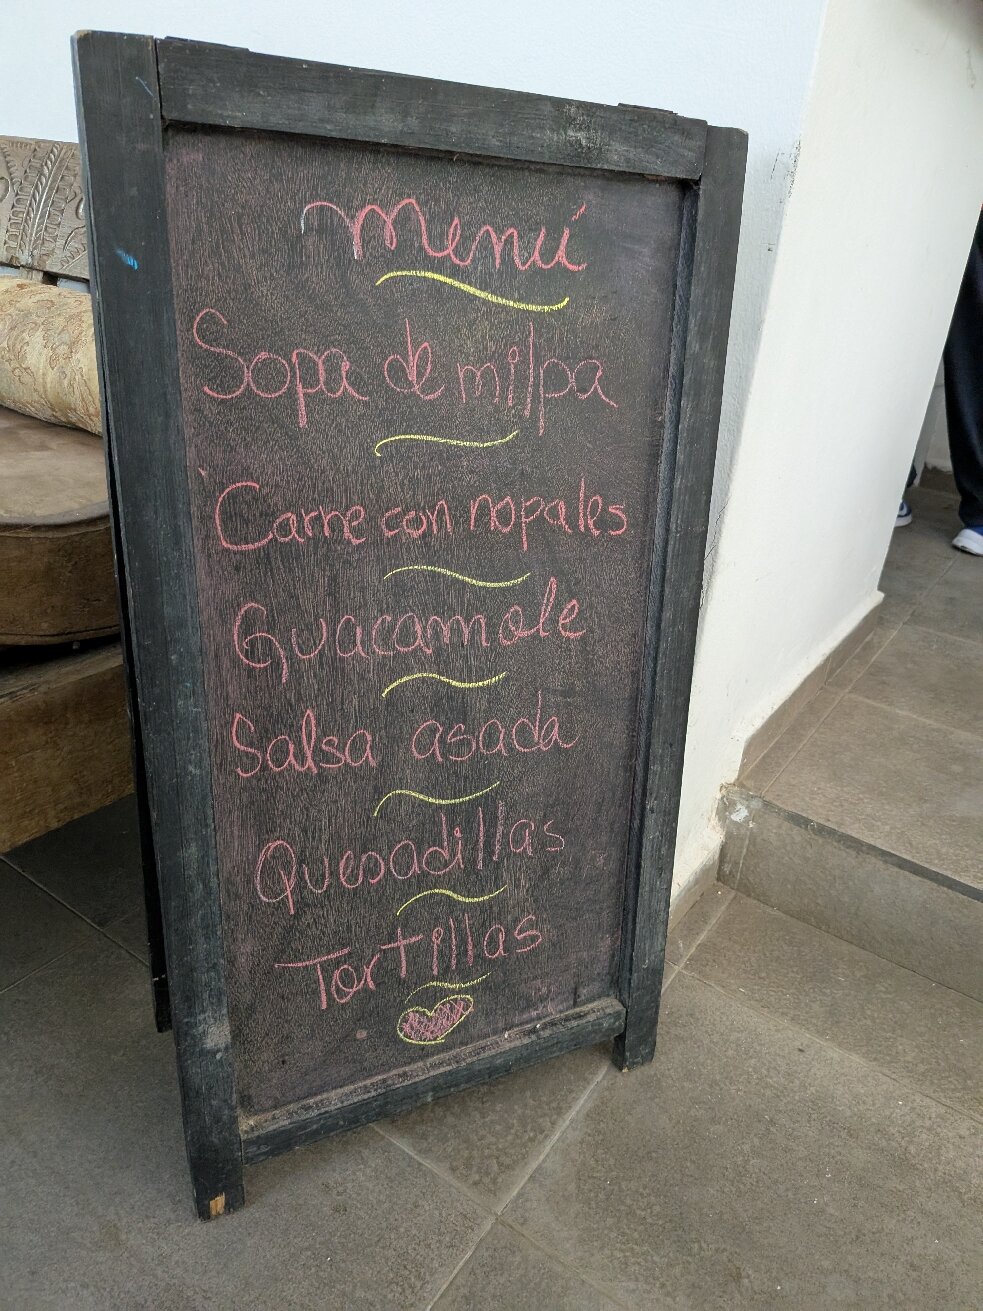 Menú
Sopa de milpa
Carne con nopales
Guacamole
Salsa asada
Quesadillas
Tortillas